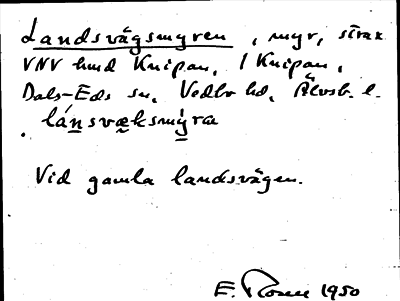 Landsvägsmyren, myr, strax
VNV hmd Knipan, 1 Knipan,
Dals-Eds sn, Vedbo hd, Älvsb. l.
lánsvæksmýra
Vid gamla landsvägen.
E. Rosell 1950